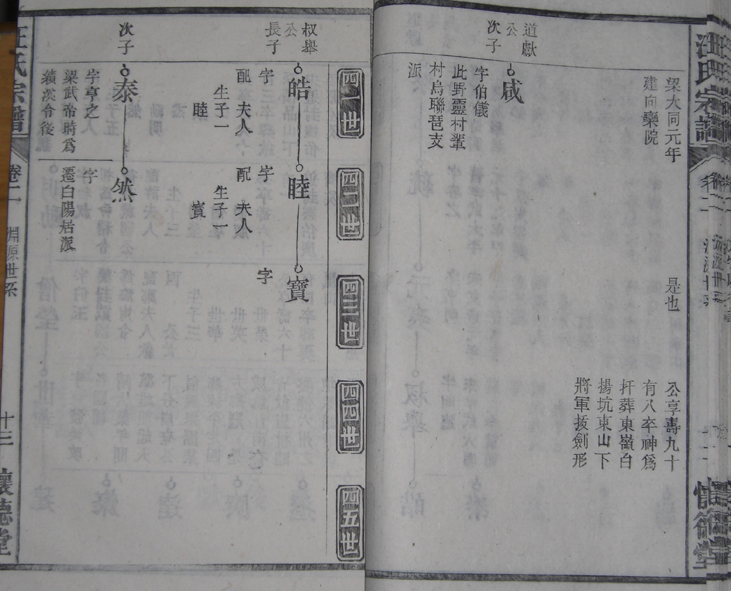 汪氏宗譜
卷二
懷德堂
梁大同元年
建向欒院
是也
公享壽九十
有八卒神爲
扦葬東嶺白
揚坑東山下
將軍拔劍形
道獻
公
次子
咸
字伯儀
此野靈村輩
村烏聯琶支
派
四一世
四二世
四三世
四四世
四五世
叔舉
公
長子
皓
睦
寶
字
配 夫人
生子一
睦
字
配 夫人
生子一
寶
字
次子
泰
然
字亨之
梁武帝時爲
績溪令後
字
遷白陽居派
汪氏宗譜
卷二
淵源世系
十三
懷德堂